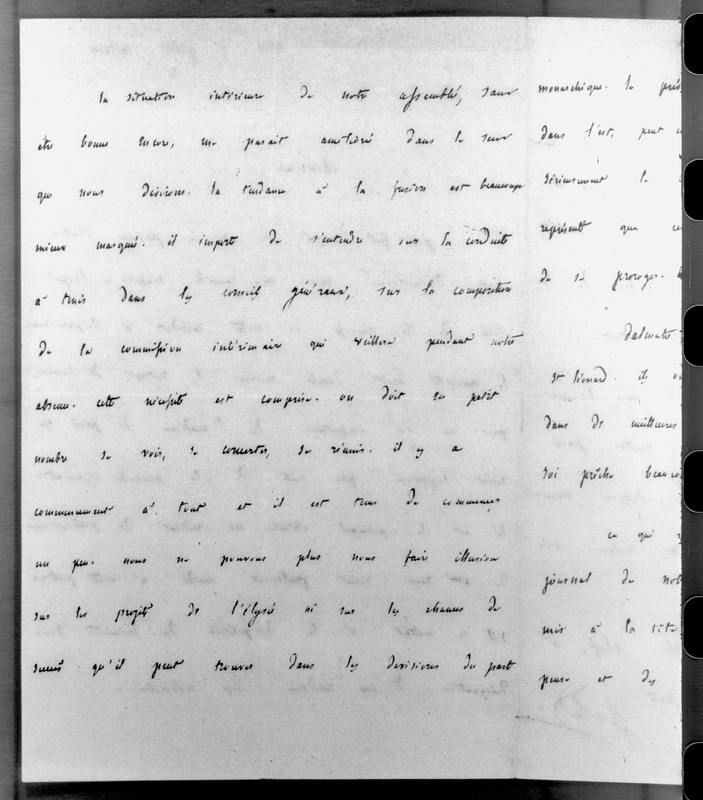 la situation intérieure de notre assemblée, sans
être bonne encore, me parait améliorée dans le sens
que nous désirons. la tendance à la fusion est beaucoup
mieux marqué. il importe de s'entendre sur la conduite
à tenir dans les conseils généraux, sur la composition
de la commission intérimaire qui veillera pendant notre
absence. cette nécessité est comprise. on doit en petit
nombre se voir, se concerter, se réunir. il y a
commencement à tout et il est tems de commencer
un peu. nous ne pouvons plus nous faire illusion
sur les projets de l'élysée ni sur les chances de
succès qu'il peut trouver dans les divisions du parti
monarchique. le
dans l'est, peut
sérieusement le
représente que
de se proroger.
dalmatie
st léonard. ils
dans de meilleures
soi prêche
ce qui
journal de
mis à la tête
pense et des